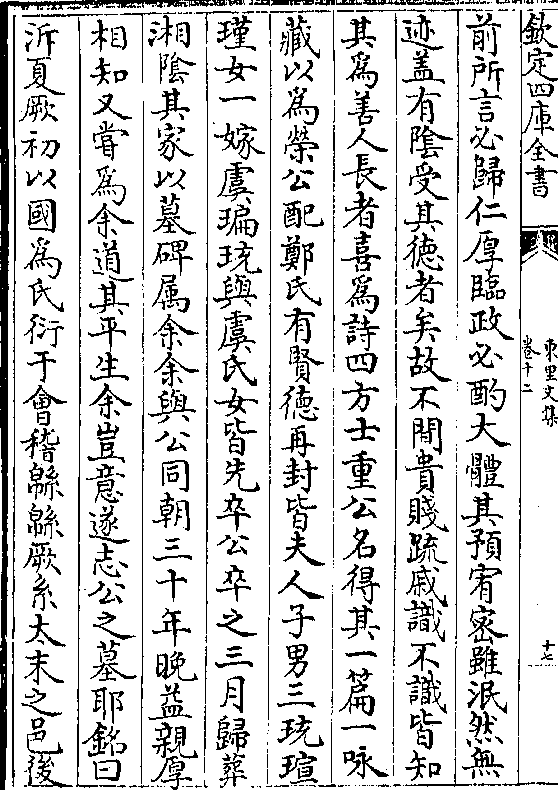 欽定四庫全書
東里文集
卷十二
十七
前所言必歸仁厚臨政必酌大體其預宥密雖泯然無
迹盖有陰受其德者矣故不間貴賤疏戚識不識皆知
其為善人長者喜為詩四方士重公名得其一篇一咏
藏以為榮公配鄭氏有賢德再封皆夫人子男三琉瑄
瑾女一嫁虞㻞琉與虞氏女皆先卒公卒之三月歸葬
湘陰其家以墓碑属余余與公同朝三十年晚益親厚
相知又嘗為余道其平生余豈意遂志公之墓耶銘曰
泝夏厥初以國為氏衍于會稽緜緜厥系太末之邑後